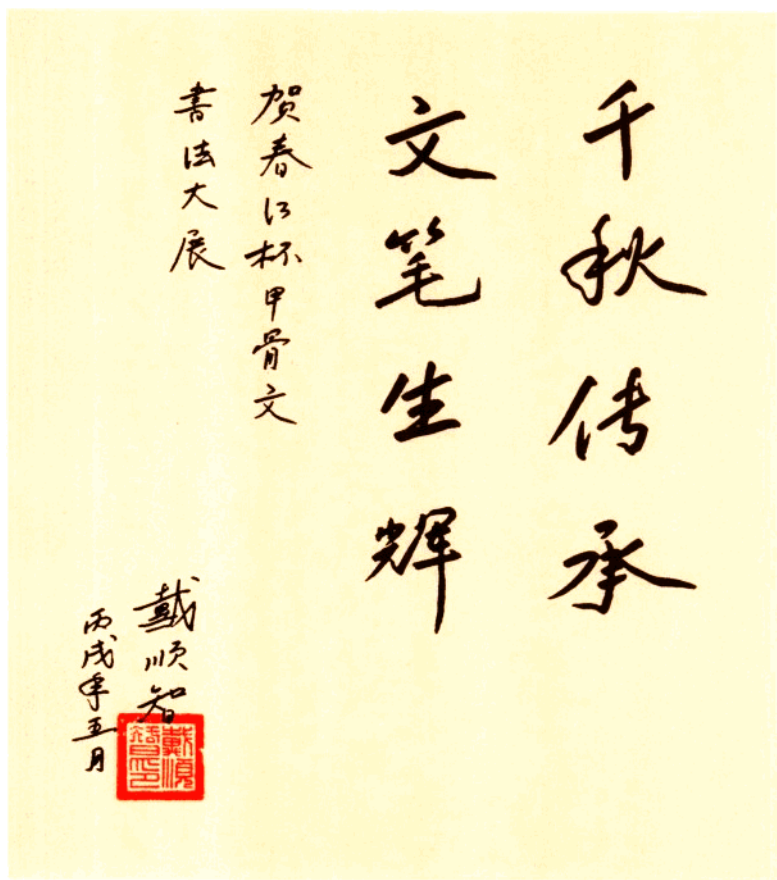 千秋传承
文笔生辉
贺春江杯甲骨文
书法大展
戴顺智
丙戌年五月
戴顺智印